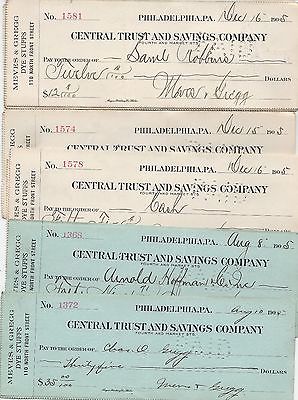 MEVES & GREGG
DYE STUFFS
110 NORTH FRONT STREET
No. 1581 PHILADELPHIA, PA. Dec 16 1905
CENTRAL TRUST AND SAVINGS COMPANY
FOURTH AND MARKET STS.
PAY TO THE ORDER OF Saml Robbins
Twelve DOLLARS
$12 00/100 Meves & Gregg
No. 1574 PHILADELPHIA, PA. Dec 15 1905
CENTRAL TRUST AND SAVINGS COMPANY
No. 1578 PHILADELPHIA, PA. Dec 16 1905
CENTRAL TRUST AND SAVINGS COMPANY
FOURTH AND MARKET STS.
PAY TO THE ORDER OF Cash
MEVES & GREGG
DYE STUFFS
NORTH FRONT STREET
No. 1368 PHILADELPHIA, PA. Aug 8 1905
CENTRAL TRUST AND SAVINGS COMPANY
FOURTH AND MARKET STS.
PAY TO THE ORDER OF Arnold Hoffman & Co Inc
MEVES & GREGG
DYE STUFFS
110 NORTH FRONT STREET
No. 1372 PHILADELPHIA, PA. Aug 10 1905
CENTRAL TRUST AND SAVINGS COMPANY
FOURTH AND MARKET STS.
PAY TO THE ORDER OF Chas. O. Gregg
Thirty five DOLLARS
$35 00/100 Meves & Gregg